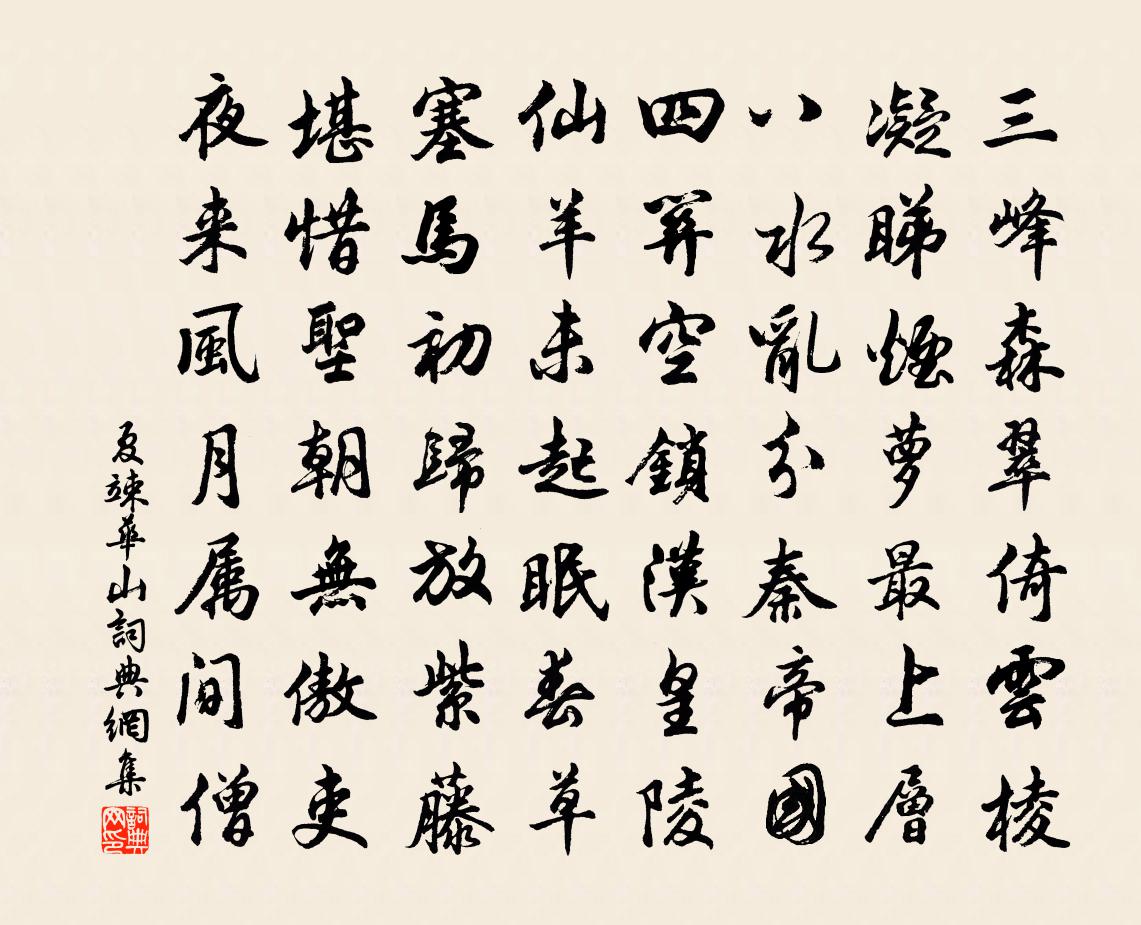 三峰森翠倚雲棱
凝睇煙萝最上層
八水亂分秦帝國
四關空鎖漢皇陵
仙羊未起眠春草
塞馬初歸放紫藤
堪惜聖朝無傲吏
夜来風月属間僧
夏竦華山詞典網集
詞典網印